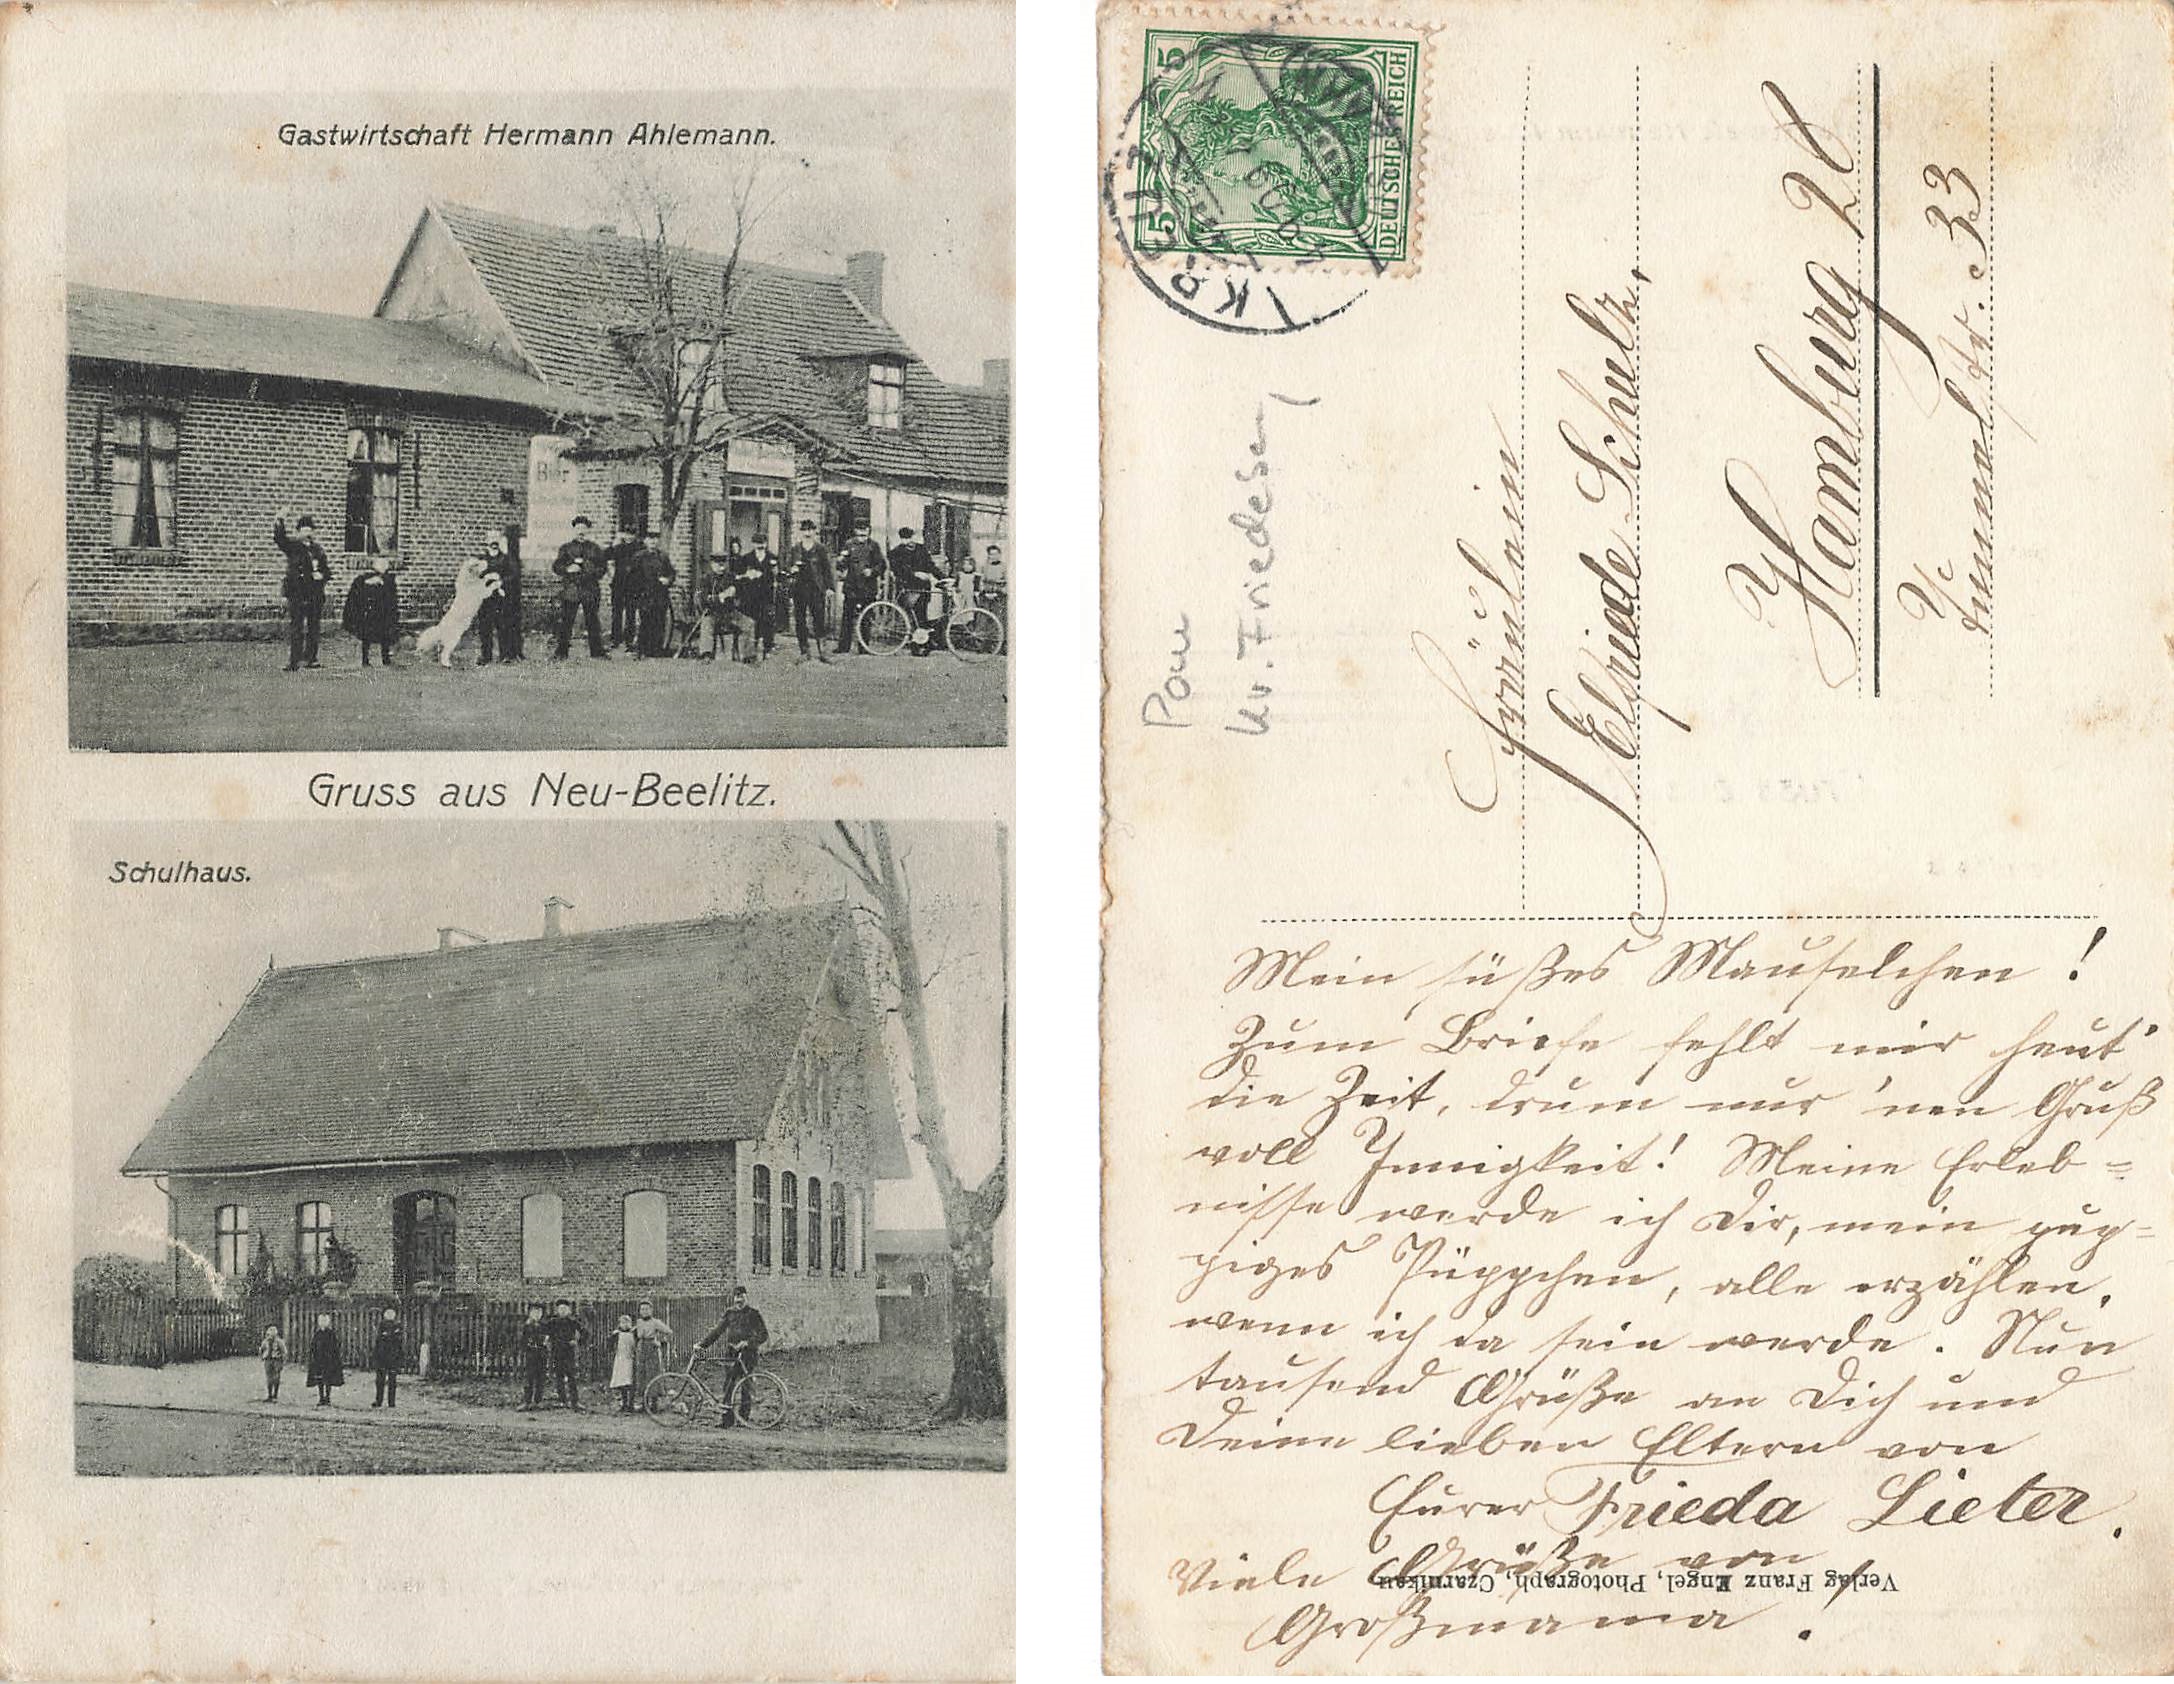 Gastwirtschaft Hermann Ahlemann.
Bier
Gruss aus Neu-Beelitz.
Schulhaus.
5
5
DEUTSCHES REICH
Kr. Friedeberg
Fräulein
Elfriede Schulz,
Hamburg 20
str. 33
Mein süßes Mauselchen!
Zum Briefe fehlt mir heut'
die Zeit, drum nur 'nen Gruß
voll Innigkeit! Meine Erleb=
nisse werde ich Dir, mein pup=
piges Püppchen, alle erzählen,
wenn ich da sein werde. Nun
tausend Grüße an Dich und
Deine lieben Eltern von
Eurer Frieda Lieter.
Viele Grüße von
Großmama.
Verlag Franz Engel, Photograph, Czarnikau